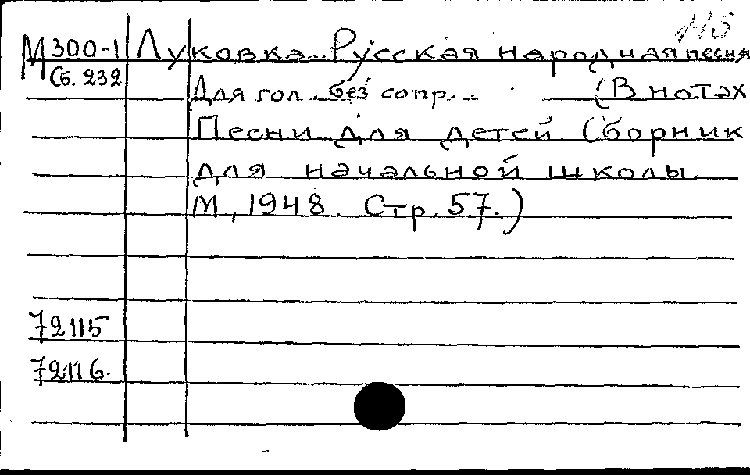 115
М 300-1 Луковка. Русская народная песня
Сб. 232
Для гол. без сопр. (В нотах
Песни для детей Сборник
для начальной школы
М., 1948. Стр. 57.)
72115
72116.